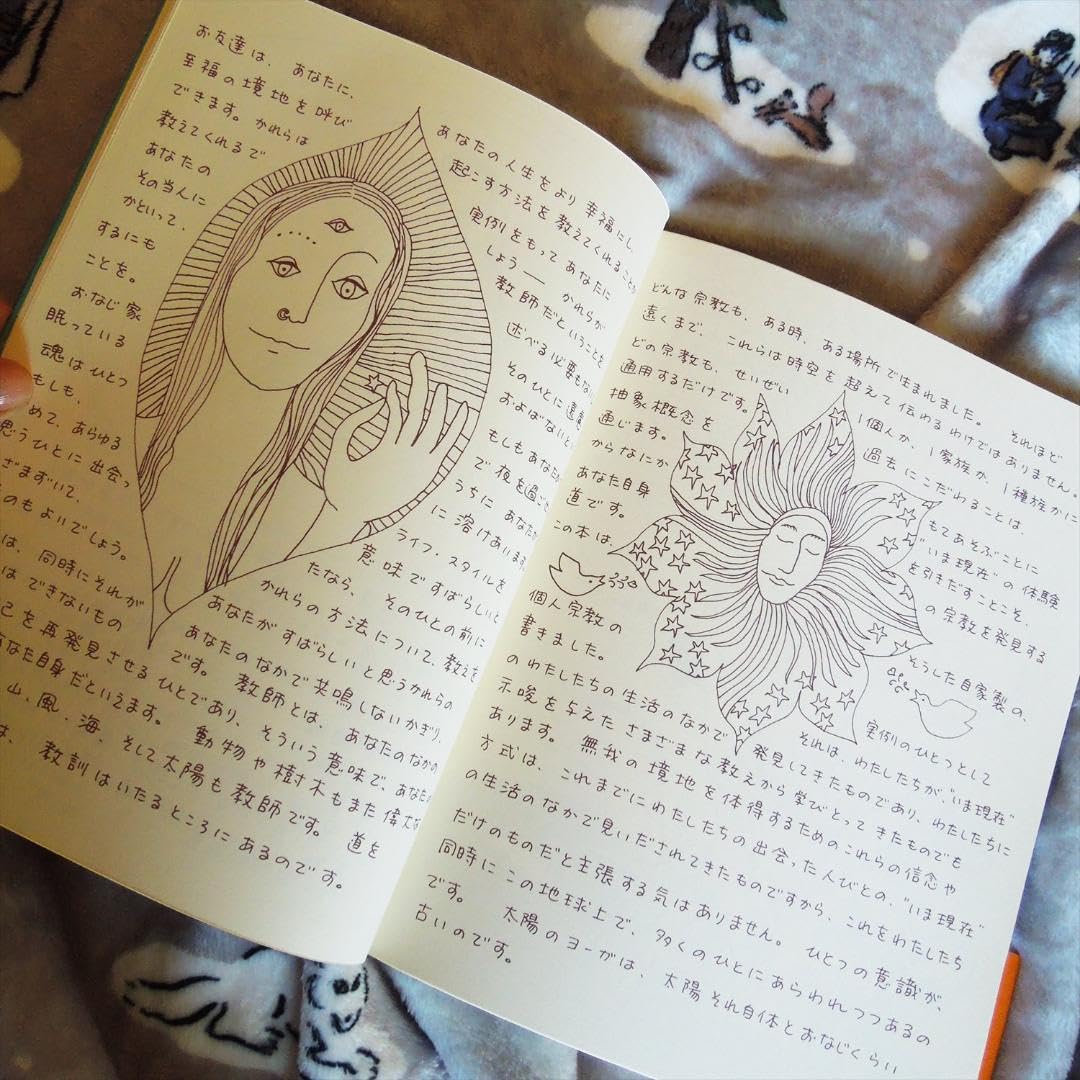 お友達は、あなたに、 あなたの人生をより幸福にし、
至福の境地を呼び 起こす方法を教えてくれることも
できます。かれらは 実例をもってあなたに
教えてくれるで しょう── かれらが
あなたの 教師だということを
その当人に 述べる必要もな
かといって、 そのひとに遠慮
するにも およばないと
ことを。 もしもあなたが
おなじ家 で夜を過ご
眠っている うちに あなた
魂はひとつ に溶けあいます
もしも、 ライフ・スタイルを
めて、あらゆる 意味ですばらしいと
思うひとに出会っ たなら、そのひとの前に
ざまずいて、 かれらの方法について、教えを
のもよいでしょう。 あなたがすばらしいと思うかれらの
は、同時にそれが あなたのなかで共鳴しないかぎり、
はできないもの です。 教師とは、あなたのなかの
己を再発見させるひとであり、そういう意味で、あなた
あなた自身だといえます。 動物や樹木もまた偉大な
山、風・海、そして太陽も教師です。 道を
は、教訓はいたるところにあるのです。
どんな宗教も、ある時、ある場所で生まれました。 それほど
遠くまで、これらは時空を超えて伝わるわけではありません。
どの宗教も、せいぜい 1個人か、1家族か、1種族かに
通用するだけです。 過去にこだわることは、
抽象概念を もてあそぶことに
通じます。 "いま現在"の体験
からなにか を引きだすことこそ、
あなた自身 の宗教を発見する
道です。
この本は、 そうした自家製の、
個人宗教の 実例のひとつとして
書きました。 それは、わたしたちが、"いま現在"
のわたしたちの生活のなかで発見してきたものであり、わたしたちに
示唆を与えたさまざまな教えから学びとってきたものでも
あります。 無我の境地を体得するためのこれらの信念や
方式は、これまでにわたしたちの出会った人びとの、"いま現在"
の生活のなかで見いだされてきたものですから、これをわたしたち
だけのものだと主張する気はありません。 ひとつの意識が、
同時にこの地球上で、多くのひとにあらわれつつあるの
です。 太陽のヨーガは、太陽それ自体とおなじくらい
古いのです。